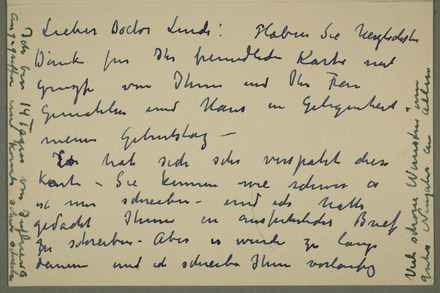 Lieber Doctor Lindt! Haben Sie herzlichsten
Dank für Ihre freundliche Karte mit
von Ihnen und Ihr Frau
Gemahlin und Hans in Gelegenheit
meines Geburtstag –
Es hat sich sehr verspätet diese
Karte – Sie kennen wie schwer es
ist mir schreiben – und ich hatte
gedacht Ihnen in ausführlicher Brief
zu schreiben – Aber es würde zu lange
dauern und ich schreibe Ihnen vorläufig
Viel schöne Wünsche zum
Neujahr an allen
Ich bin 14 Tagen von
und